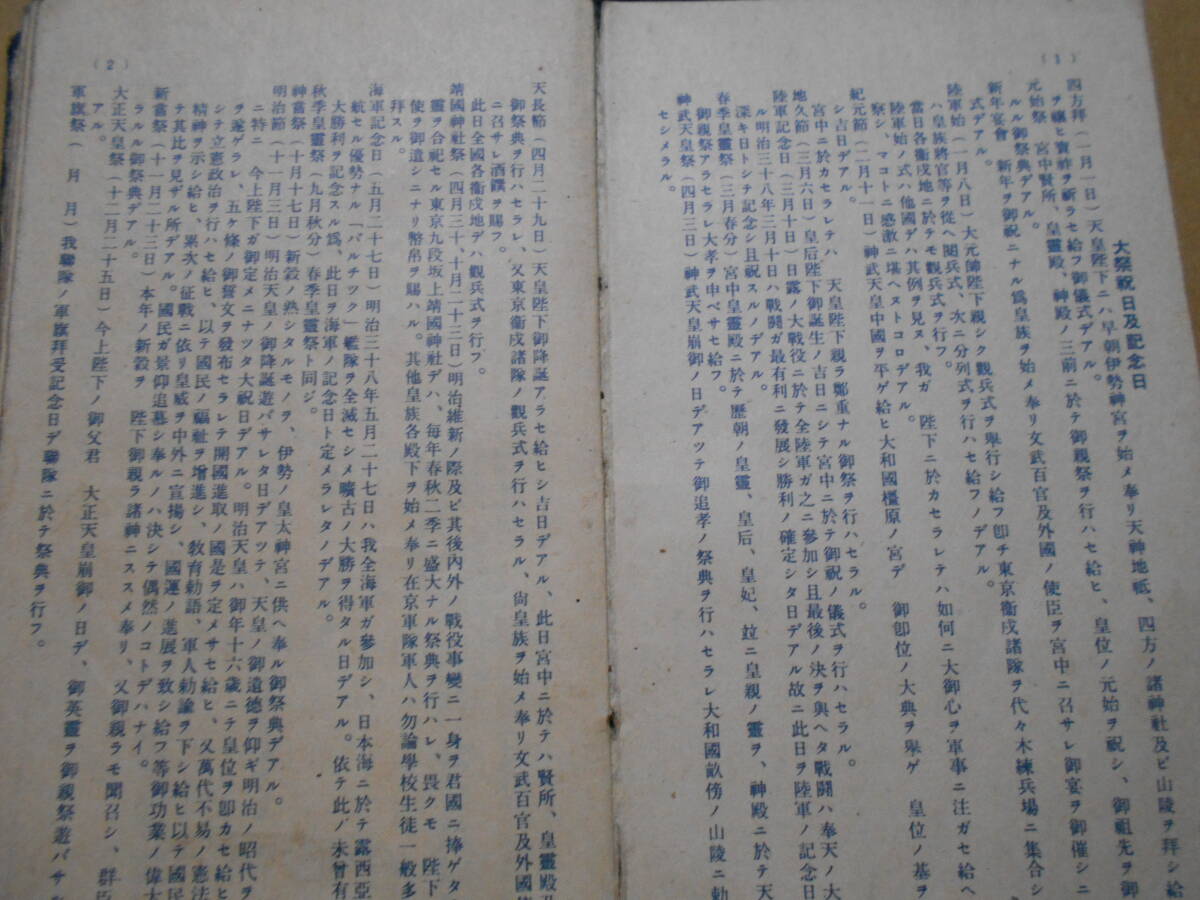 (1)
大祭祝日及記念日
四方拜(一月一日)天皇陛下ニハ早朝伊勢神宮ヲ始メ奉リ天神地祗、四方ノ諸神社及ビ山陵ヲ拜シ給
ヲ禳ヒ寶祚ヲ祈ラセ給フ御儀式デアル。
元始祭 宮中賢所、皇靈殿、神殿ノ三前ニ於テ御親祭ヲ行ハセ給ヒ、皇位ノ元始ヲ祝シ、御祖先ヲ御
ルル御祭典デアル。
新年宴會 新年ヲ御祝ニナル爲皇族ヲ始メ奉リ文武百官及外國ノ使臣ヲ宮中ニ召サレ御宴ヲ御催シニ
式デアル。
陸軍始(一月八日)大元帥陛下親シク觀兵式ヲ擧行シ給フ卽チ東京衞戍諸隊ヲ代々木練兵場ニ集合シ
ハ皇族將官等ヲ從ヘ閱兵式、次ニ分列式ヲ行ハセ給フノデアル。
當日各衞戍地ニ於テモ觀兵式ヲ行フ。
陸軍始ノ式ハ他國デハ其例ヲ見ヌ、我ガ 陛下ニ於カセラレテハ如何ニ大御心ヲ軍事ニ注ガセ給ヘ
祭シ、マコトニ感激ニ堪ヘヌトコロデアル。
紀元節(二月十一日)神武天皇中國ヲ平ゲ給ヒ大和國橿原ノ宮デ 御卽位ノ大典ヲ擧ゲ 皇位ノ基ヲ
シ吉日デアル。
宮中ニ於カセラレテハ 天皇陛下親ラ鄭重ナル御祭ヲ行ハセラル。
地久節(三月六日)皇后陛下御誕生ノ吉日ニシテ宮中ニ於テ御祝ノ儀式ヲ行ハセラル。
陸軍記念日(三月十日)日露ノ大戰役ニ於テ全陸軍ガ之ニ參加シ且最後ノ決ヲ與ヘタ戰鬪ハ奉天ノ大
ル明治三十八年三月十日ハ戰鬪ガ最有利ニ發展シ勝利ノ確定シタ日デアル故ニ此日ヲ陸軍ノ記念日
深キ日トシテ記念シ且祝スルノデアル。
春季皇靈祭(三月春分)宮中皇靈殿ニ於テ歷朝ノ皇靈、皇后、皇妃、竝ニ皇親ノ靈ヲ、神殿ニ於テ天
御親祭アラセラレ大孝ヲ申ベサセ給フ。
神武天皇祭(四月三日)神武天皇崩御ノ日デアツテ御追孝ノ祭典ヲ行ハセラレ大和國畝傍ノ山陵ニ勅
セシメラル。
(2)
天長節(四月二十九日)天皇陛下御降誕アラセ給ヒシ吉日デアル、此日宮中ニ於テハ賢所、皇靈殿
御祭典ヲ行ハセラレ、又東京衞戍諸隊ノ觀兵式ヲ行ハセラル、尙皇族ヲ始メ奉リ文武百官及外國
ニ召サレ酒饌ヲ賜フ。
此日全國各衞戍地デハ觀兵式ヲ行フ。
靖國神社祭(四月三十、十月二十三日)明治維新ノ際及ビ其後內外ノ戰役事變ニ一身ヲ君國ニ捧ゲタ
靈ヲ合祀セル東京九段坂上靖國神社デハ、每年春秋二季ニ盛大ナル祭典ヲ行ハレ、畏クモ 陛下
使ヲ御遣シニナリ幣帛ヲ賜ハル。其他皇族各殿下ヲ始メ奉リ在京軍隊軍人ハ勿論學校生徒一般多
拜スル。
海軍記念日(五月二十七日)明治三十八年五月二十七日ハ我全海軍ガ參加シ、日本海ニ於テ露西亞
航セル優勢ナル「バルチツク」艦隊ヲ全滅セシメ曠古ノ大勝ヲ得タル日デアル。依テ此ノ未曾有
大勝利ヲ記念スル爲、此日ヲ海軍ノ記念日ト定メラレタノデアル。
秋季皇靈祭(九月秋分)春季皇靈祭ト同ジ。
神嘗祭(十月十七日)新穀ノ熟シタルモノヲ、伊勢ノ皇太神宮ニ供ヘ奉ル御祭典デアル。
明治節(十一月三日)明治天皇ノ御降誕遊バサレタ日デアツテ、天皇ノ御遺德ヲ仰ギ明治ノ昭代ヲ
ニ特ニ 今上陛下ガ御定メニナツタ大祝日デアル。明治天皇ハ御年十六歲ニテ皇位ヲ卽カセ給ヒ
ヲ遂ゲラレ、五ケ條ノ御誓文ヲ發布セラレテ開國進取ノ國是ヲ定メサセ給ヒ、又萬代不易ノ憲法
シテ立憲政治ヲ行ハセ給ヒ、以テ國民ノ福祉ヲ增進シ、敎育勅語、軍人勅諭ヲ下シ給ヒ以テ國民
精神ヲ示シ給ヒ、累次ノ征戰ニ依リ皇威ヲ中外ニ宣揚シ、國運ノ進展ヲ致シ給フ等御功業ノ偉大
テ其比ヲ見ザル所デアル。國民ガ景仰追慕シ奉ルノハ決シテ偶然ノコトデハナイ。
新嘗祭(十一月二十三日)本年ノ新穀ヲ 陛下御親ラ諸神ニススメ奉リ、又御親ラモ聞召シ、群臣
ラルル御祭典デアル。
大正天皇祭(十二月二十五日)今上陛下ノ御父君 大正天皇崩御ノ日デ、御英靈ヲ御親祭遊バサ
アル。
軍旗祭( 月 月)我聯隊ノ軍旗拜受記念日デ聯隊ニ於テ祭典ヲ行フ。